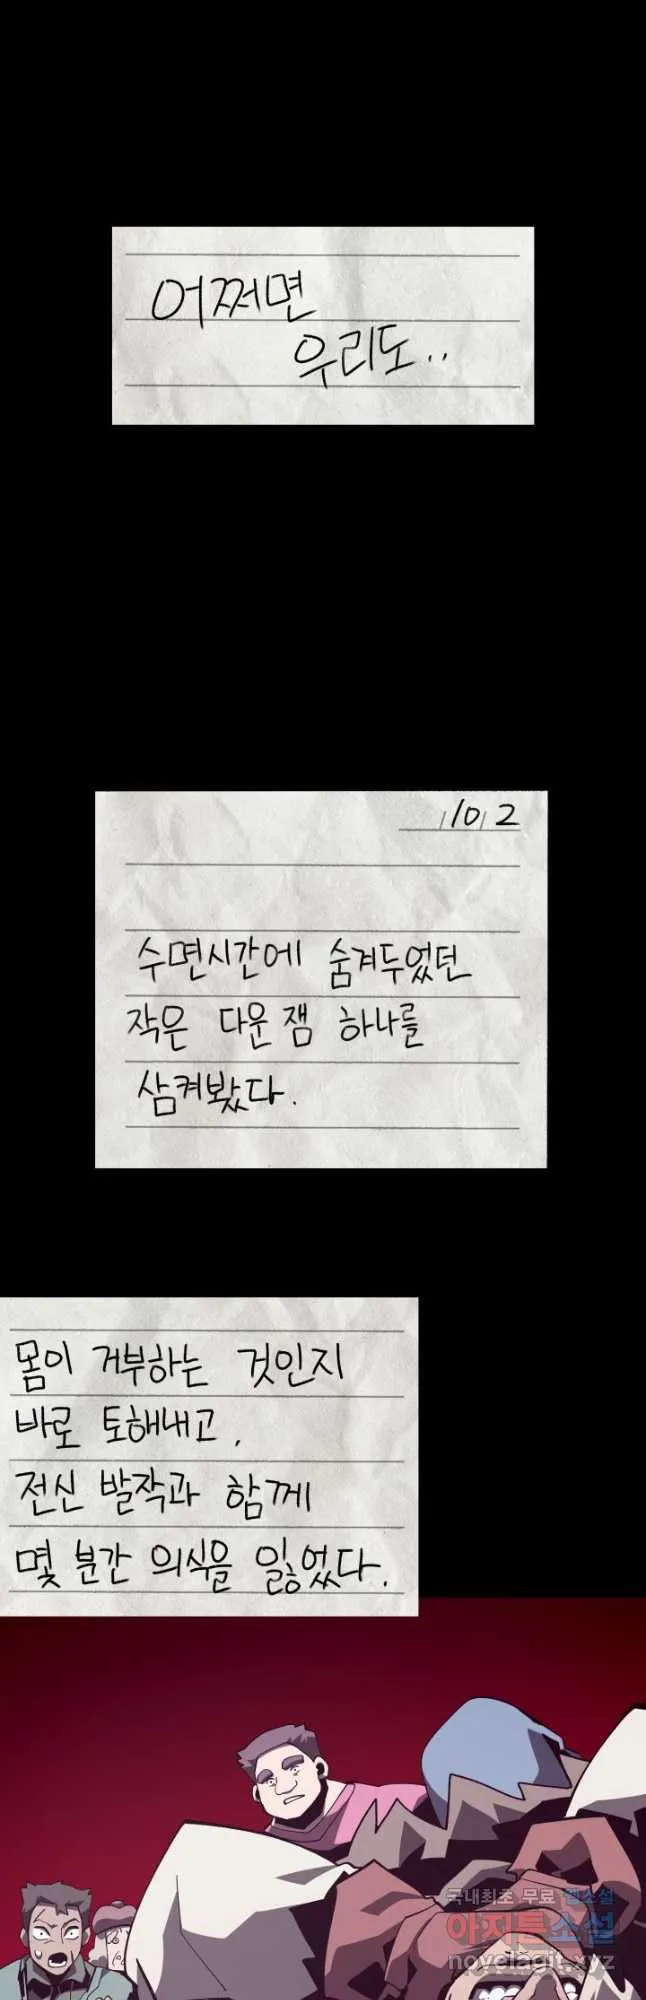 어쩌면
우리도..
10 2
수면시간에 숨겨두었던
작은 다운잼 하나를
삼켜봤다.
몸이 거부하는 것인지
바로 토해내고,
전신 발작과 함께
몇 분간 의식을 잃었다.
국내최초 무료 웹소설
아지툰소설
novelagit.xyz